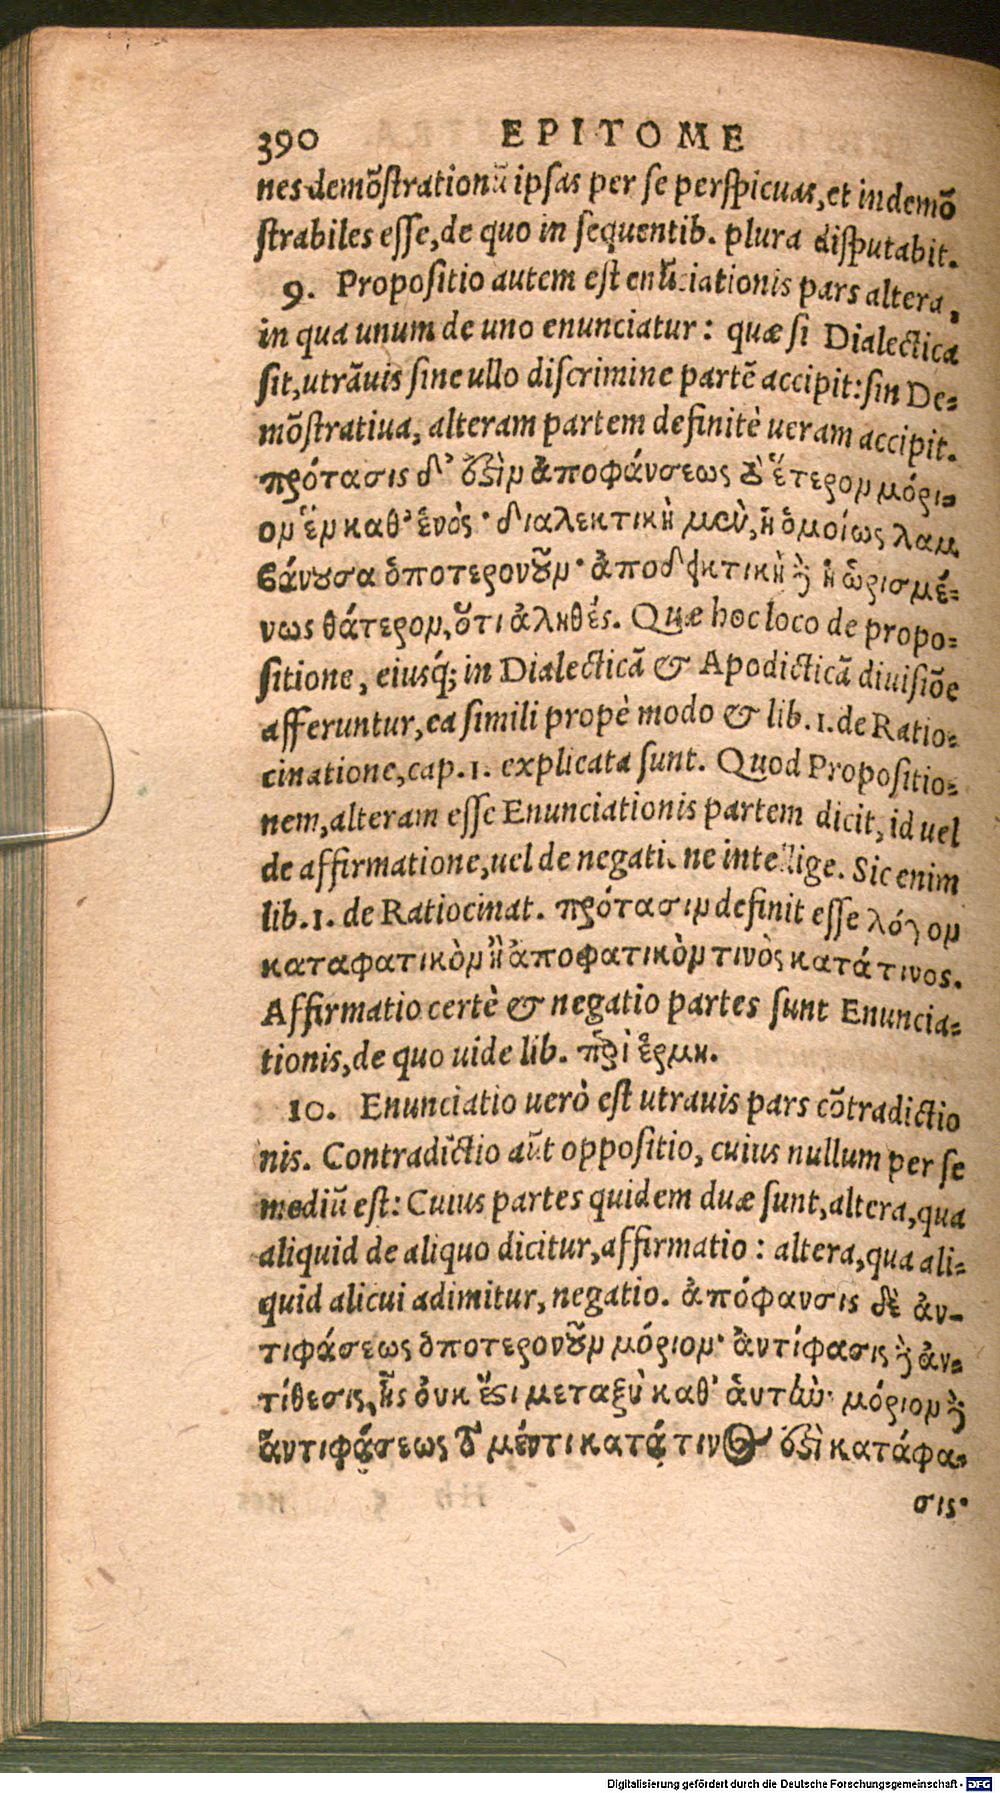 390 EPITOME
nes demõſtrationũ ipſas per ſe perſpicuas, et indemõ
ſtrabiles eſſe, de quo in ſequentib. plura diſputabit.
9. Propoſitio autem eſt enũciationis pars altera,
in qua unum de uno enunciatur: quæ ſi Dialectica
ſit, utrãuis ſine ullo diſcrimine partẽ accipit: ſin De-
mõſtratiua, alteram partem definitè ueram accipit.
πρότασις δ' ἐστὶν ἀποφάνσεως τὸ ἕτερον μόρι-
ον ἓν καθ' ἑνός· διαλεκτικὴ μὲν, ἡ ὁμοίως λαμ
βάνουσα ὁποτερονοῦν· ἀποδεικτικὴ δὲ ἡ ὡρισμέ-
νως θάτερον, ὅτι ἀληθές. Quæ hoc loco de propo-
ſitione, eiusq́; in Dialecticã & Apodicticã diuiſiõe
afferuntur, ea ſimili propè modo & lib. 1. de Ratio-
cinatione, cap. 1. explicata ſunt. Quod Propoſitio-
nem, alteram eſſe Enunciationis partem dicit, id uel
de affirmatione, uel de negati ne intellige. Sic enim
lib. 1. de Ratiocinat. πρότασιν definit eſſe λόγον
καταφατικὸν ἢ ἀποφατικὸν τινὸς κατά τινος.
Affirmatio certè & negatio partes ſunt Enuncia-
tionis, de quo uide lib. περὶ ἑρμη.
10. Enunciatio uerò eſt utrauis pars cõtradictio
nis. Contradictio aũt oppoſitio, cuius nullum per ſe
mediũ eſt: Cuius partes quidem duæ ſunt, altera, qua
aliquid de aliquo dicitur, affirmatio: altera, qua ali-
quid alicui adimitur, negatio. ἀπόφανσις δὲ ἀν-
τιφάσεως ὁποτερονοῦν μόριον· ἀντίφασις δὲ ἀν-
τίθεσις, ἧς οὐκ ἔστι μεταξὺ καθ' αὑτήν· μόριον δὲ
ἀντιφάσεως τὸ μέν τι κατά τινος ἐστὶ κατάφα-
σις·
Digitalisierung gefördert durch die Deutsche Forschungsgemeinschaft - DFG